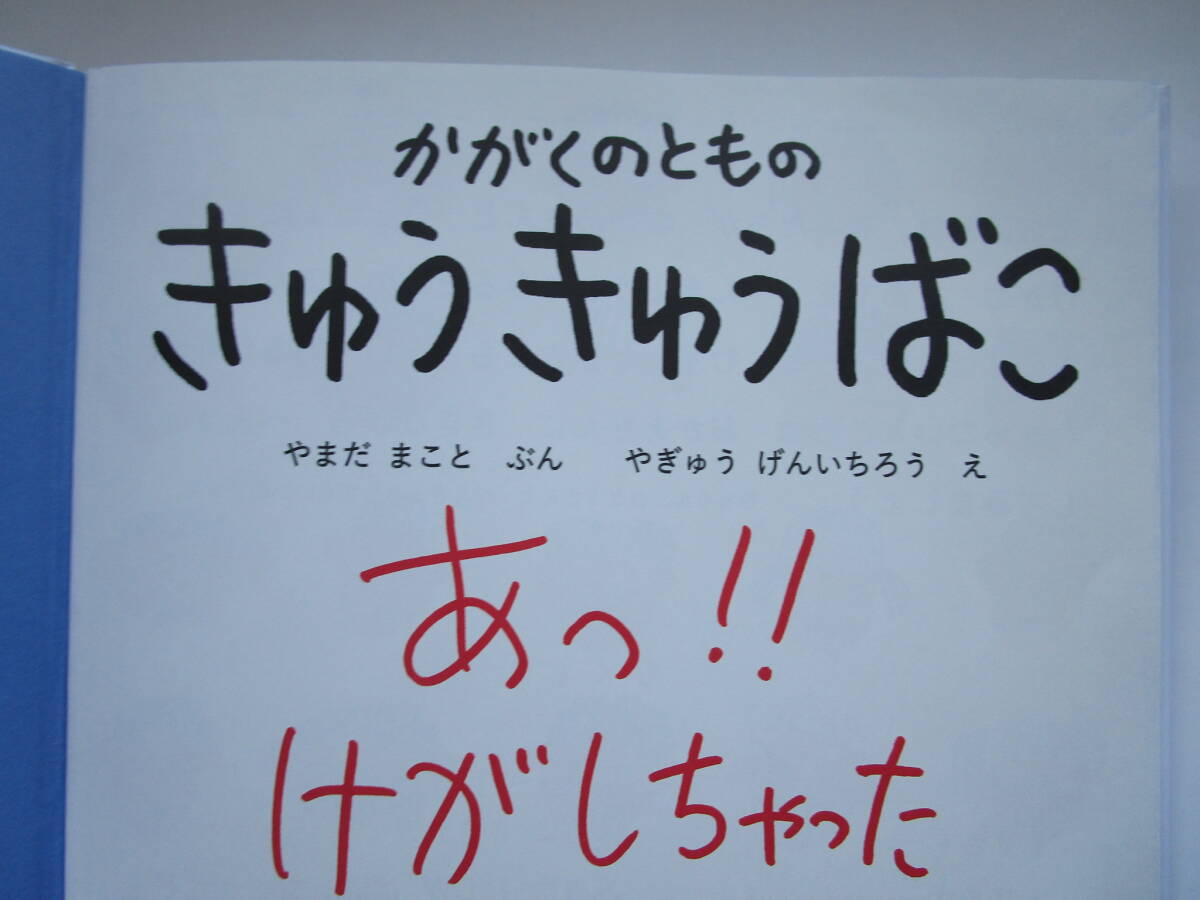 かがくのともの
きゅうきゅうばこ
やまだ まこと　ぶん　　やぎゅう げんいちろう　え
あっ!!
けがしちゃった